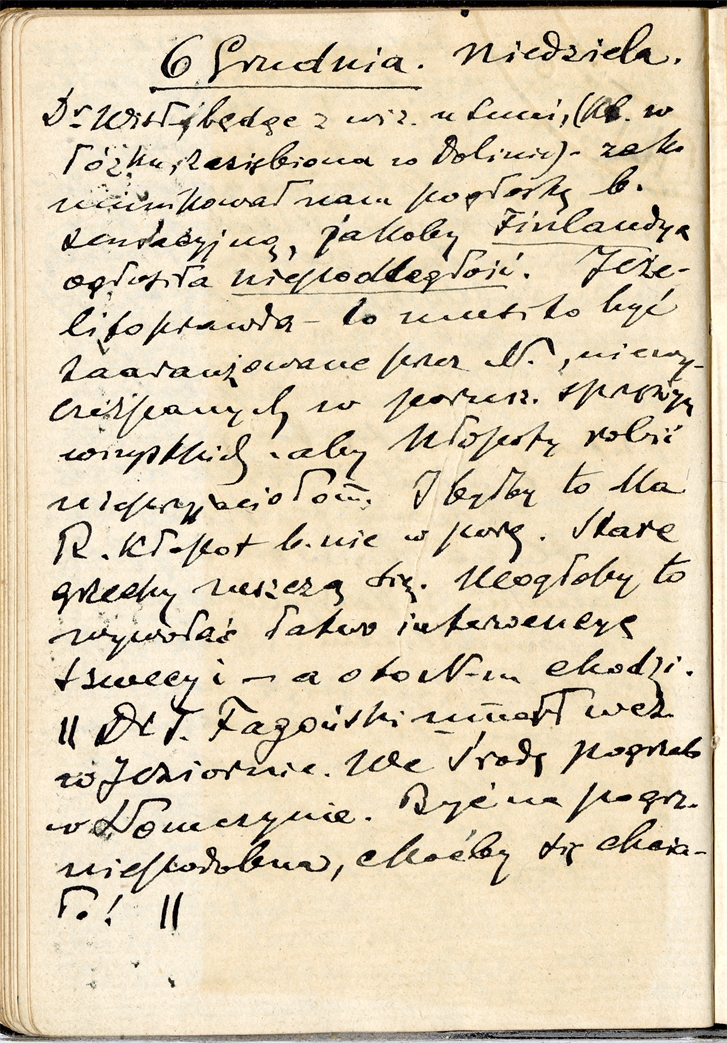 6 Grudnia. Niedziela.
Dr. Wisł. będąc z wiz. u Luni, (kt. w
łóżku, zaziębiona w Dolinie) - zako
munikował nam pogłoskę b.
sensacyjną, jakoby Finlandya
ogłosiła niepodległość. Jeże-
li to prawda - to musi to być
zaaranżowane przez N., niewy-
czerpanych w porusz. sprężyn
wszystkich - aby kłopoty robić
nieprzyjaciołom. I byłby to dla
R. kłopot b. nie w porę. Stare
grzechy mszczą się. Mogłoby to
wywołać łatwo interwencyę
Szwecyi - a o to N-m chodzi.
|| Dr T. umarł wcz.
w Jeziornie. We środę pogrzeb
w Słomczynie. Być na pogrz.
niepodobna, choćby się chcia-
ło! ||